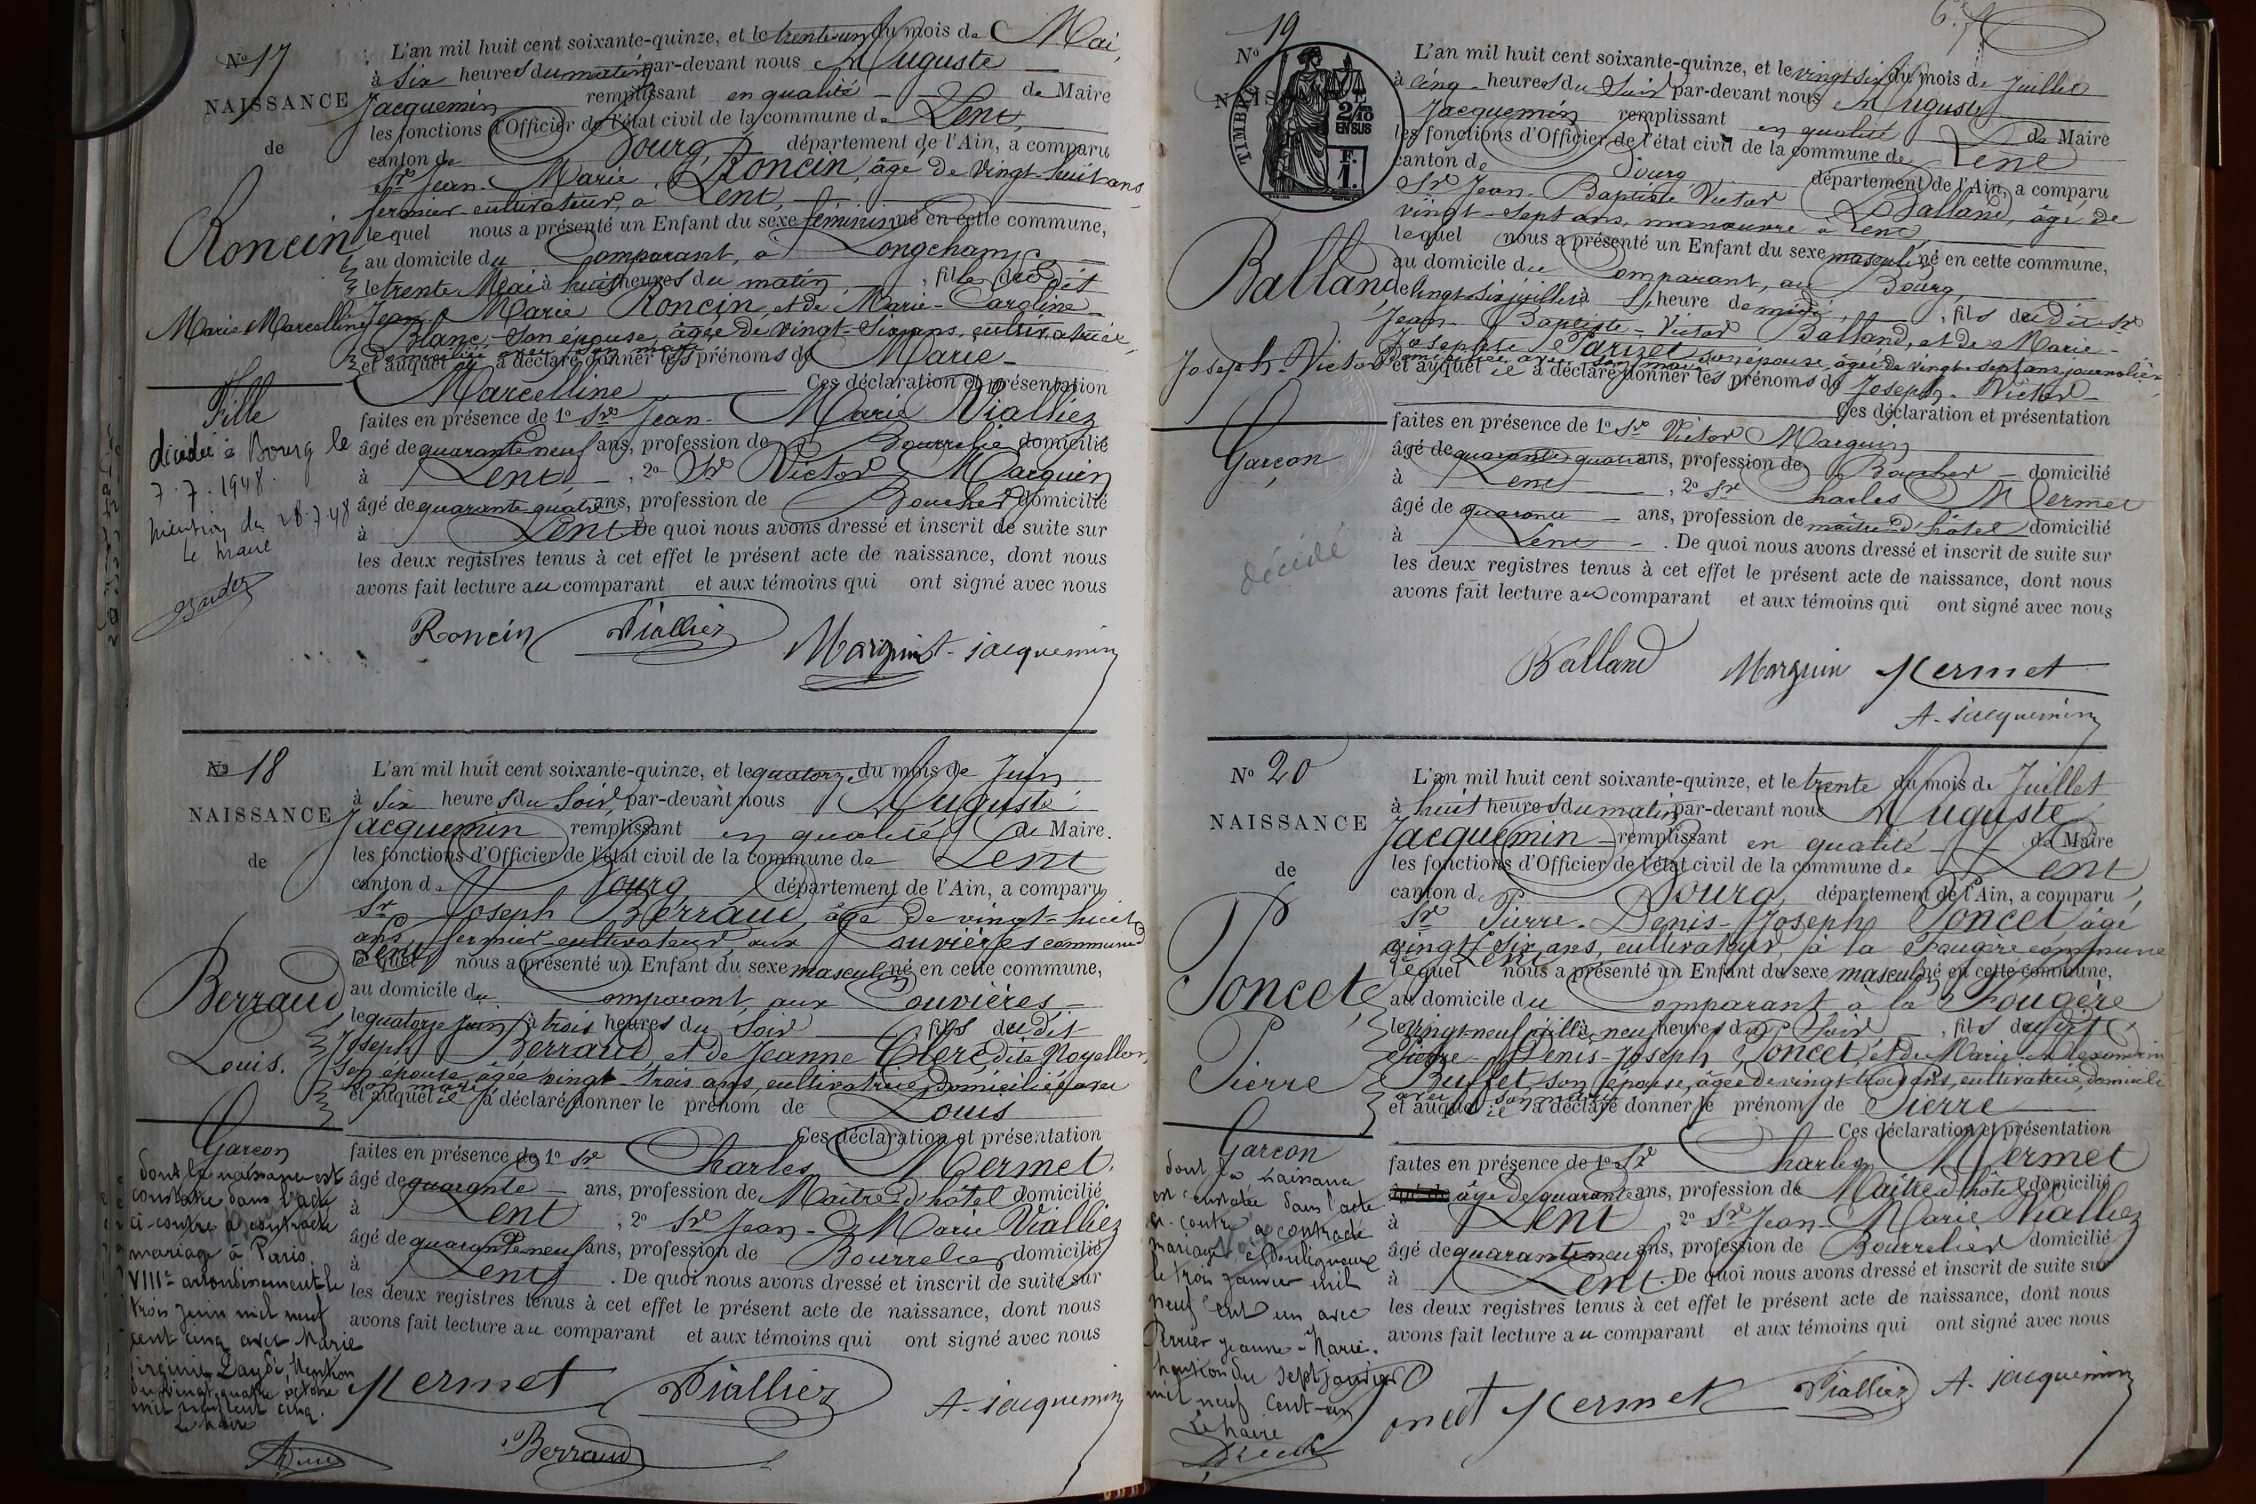 No 17
NAISSANCE
de
Roncin
Marie Marcelline
Fille
décédée à Bourg le
7.7.1948.
Mention du 28.7.48
Le Maire
L'an mil huit cent soixante-quinze, et le trente-un du mois de Mai,
à six heures du matin par-devant nous Auguste
Jacquemin remplissant en qualité de Maire
les fonctions d'Officier de l'état civil de la commune de Lent,
canton de Bourg, département de l'Ain, a comparu
Sr Jean-Marie Roncin, âgé de vingt-huit ans,
fermier cultivateur, à Lent,
lequel nous a présenté un Enfant du sexe féminin né en cette commune,
au domicile du Comparant, à Longchamp
le trente Mai à huit heures du matin, fille dudit
Jean Marie Roncin, et de Marie-Caroline
Blanc, son épouse, âgée de vingt-six ans, cultivatrice,
domiciliée avec son mari
et auquel il a déclaré donner les prénoms de Marie-
Marcelline Ces déclaration et présentation
faites en présence de 1º Sr Jean-Marie Vialliez
âgé de quarante neuf ans, profession de Bourrelier domicilié
à Lent, 2º Sr Victor Marguin
âgé de quarante-quatre ans, profession de Boucher domicilié
à Lent De quoi nous avons dressé et inscrit de suite sur
les deux registres tenus à cet effet le présent acte de naissance, dont nous
avons fait lecture au comparant et aux témoins qui ont signé avec nous
Roncin Vialliez Marguin A. Jacquemin
No 18
NAISSANCE
de
Berraud
Louis.
Garçon
dont la naissance est
constatée dans l'acte
ci-contre a contracté
mariage à Paris
VIIIe arrondissement le
trois juin mil neuf
cent cinq avec Marie
Virginie Mention
du vingt quatre octobre
mil neuf cent cinq.
Le Maire
L'an mil huit cent soixante-quinze, et le quatorze du mois de Juin
à six heures du soir, par-devant nous Auguste
Jacquemin remplissant en qualité de Maire.
les fonctions d'Officier de l'état civil de la commune de Lent
canton de Bourg, département de l'Ain, a comparu
Sr Joseph Berraud, âgé de vingt-huit
ans fermier-cultivateur aux Couvières commune
de Lent
lequel nous a présenté un Enfant du sexe masculin né en cette commune,
au domicile du Comparant, aux Couvières
le quatorze Juin à trois heures du soir, fils dudit
Joseph Berraud, et de Jeanne Clerc, dite
son épouse, âgée vingt-trois ans, cultivatrice, domiciliée avec
son mari
et auquel il a déclaré donner le prénom de Louis
Ces déclaration et présentation
faites en présence de 1º Sr Charles Mermet
âgé de quarante ans, profession de Maître d'hôtel domicilié
à Lent, 2º Sr Jean-Marie Vialliez
âgé de quarante neuf ans, profession de Bourrelier domicilié
à Lent. De quoi nous avons dressé et inscrit de suite sur
les deux registres tenus à cet effet le présent acte de naissance, dont nous
avons fait lecture au comparant et aux témoins qui ont signé avec nous
Mermet Vialliez A. Jacquemin
Berraud
No 19
TIMBRE
2/10
EN SUS
F.
1.
Balland
Joseph-Victor
Garçon
décédé
L'an mil huit cent soixante-quinze, et le vingt six du mois de Juillet
à cinq heures du soir par-devant nous Auguste
Jacquemin remplissant en qualité de Maire
les fonctions d'Officier de l'état civil de la commune de Lent
canton de Bourg département de l'Ain, a comparu
Sr Jean-Baptiste Victor Balland, âgé de
vingt-sept ans, manœuvre à Lent
lequel nous a présenté un Enfant du sexe masculin né en cette commune,
au domicile du Comparant, au Bourg,
le vingt-six juillet à heure de midi, fils dudit Sr
Jean-Baptiste-Victor Balland, et de Marie-
Josephte Parizet son épouse, âgée de vingt-sept ans, journalière
domiciliée avec son mari
et auquel il a déclaré donner les prénoms de Joseph-Victor
Ces déclaration et présentation
faites en présence de 1º Sr Victor Marguin
âgé de quarante-quatre ans, profession de Boucher domicilié
à Lent, 2º Sr Charles Mermet
âgé de quarante ans, profession de maître d'hôtel domicilié
à Lent. De quoi nous avons dressé et inscrit de suite sur
les deux registres tenus à cet effet le présent acte de naissance, dont nous
avons fait lecture au comparant et aux témoins qui ont signé avec nous
Balland Marguin Mermet
A. Jacquemin
No 20
NAISSANCE
de
Poncet,
Pierre
Garçon
dont la naissance
est constatée dans l'acte
ci-contre a contracté
mariage à Bouligneux
le trois janvier mil
neuf cent un avec
Perrier Jeanne-Marie.
Mention du sept janvier
mil neuf cent-un
Le Maire
L'an mil huit cent soixante-quinze, et le trente du mois de Juillet
à huit heures du matin par-devant nous Auguste
Jacquemin remplissant en qualité de Maire
les fonctions d'Officier de l'état civil de la commune de Lent
canton de Bourg, département de l'Ain, a comparu
Sr Pierre-Denis-Joseph Poncet âgé
vingt six ans, cultivateur, à la Fougère commune
de Lent
lequel nous a présenté un Enfant du sexe masculin né en cette commune,
au domicile du Comparant, à la Fougère
le vingt-neuf juillet à neuf heures du soir, fils dudit
Pierre-Denis-Joseph Poncet, et de Marie-Alexandrine
Buffet, son épouse, âgée de vingt-trois ans, cultivatrice, domiciliée
avec son mari
et auquel il a déclaré donner le prénom de Pierre
Ces déclaration et présentation
faites en présence de 1º Sr Charles Mermet
âgé de quarante ans, profession de Maître d'hôtel domicilié
à Lent, 2º Sr Jean-Marie Vialliez
âgé de quarante neuf ans, profession de Bourrelier domicilié
à Lent. De quoi nous avons dressé et inscrit de suite sur
les deux registres tenus à cet effet le présent acte de naissance, dont nous
avons fait lecture au comparant et aux témoins qui ont signé avec nous
Mermet Vialliez A. Jacquemin